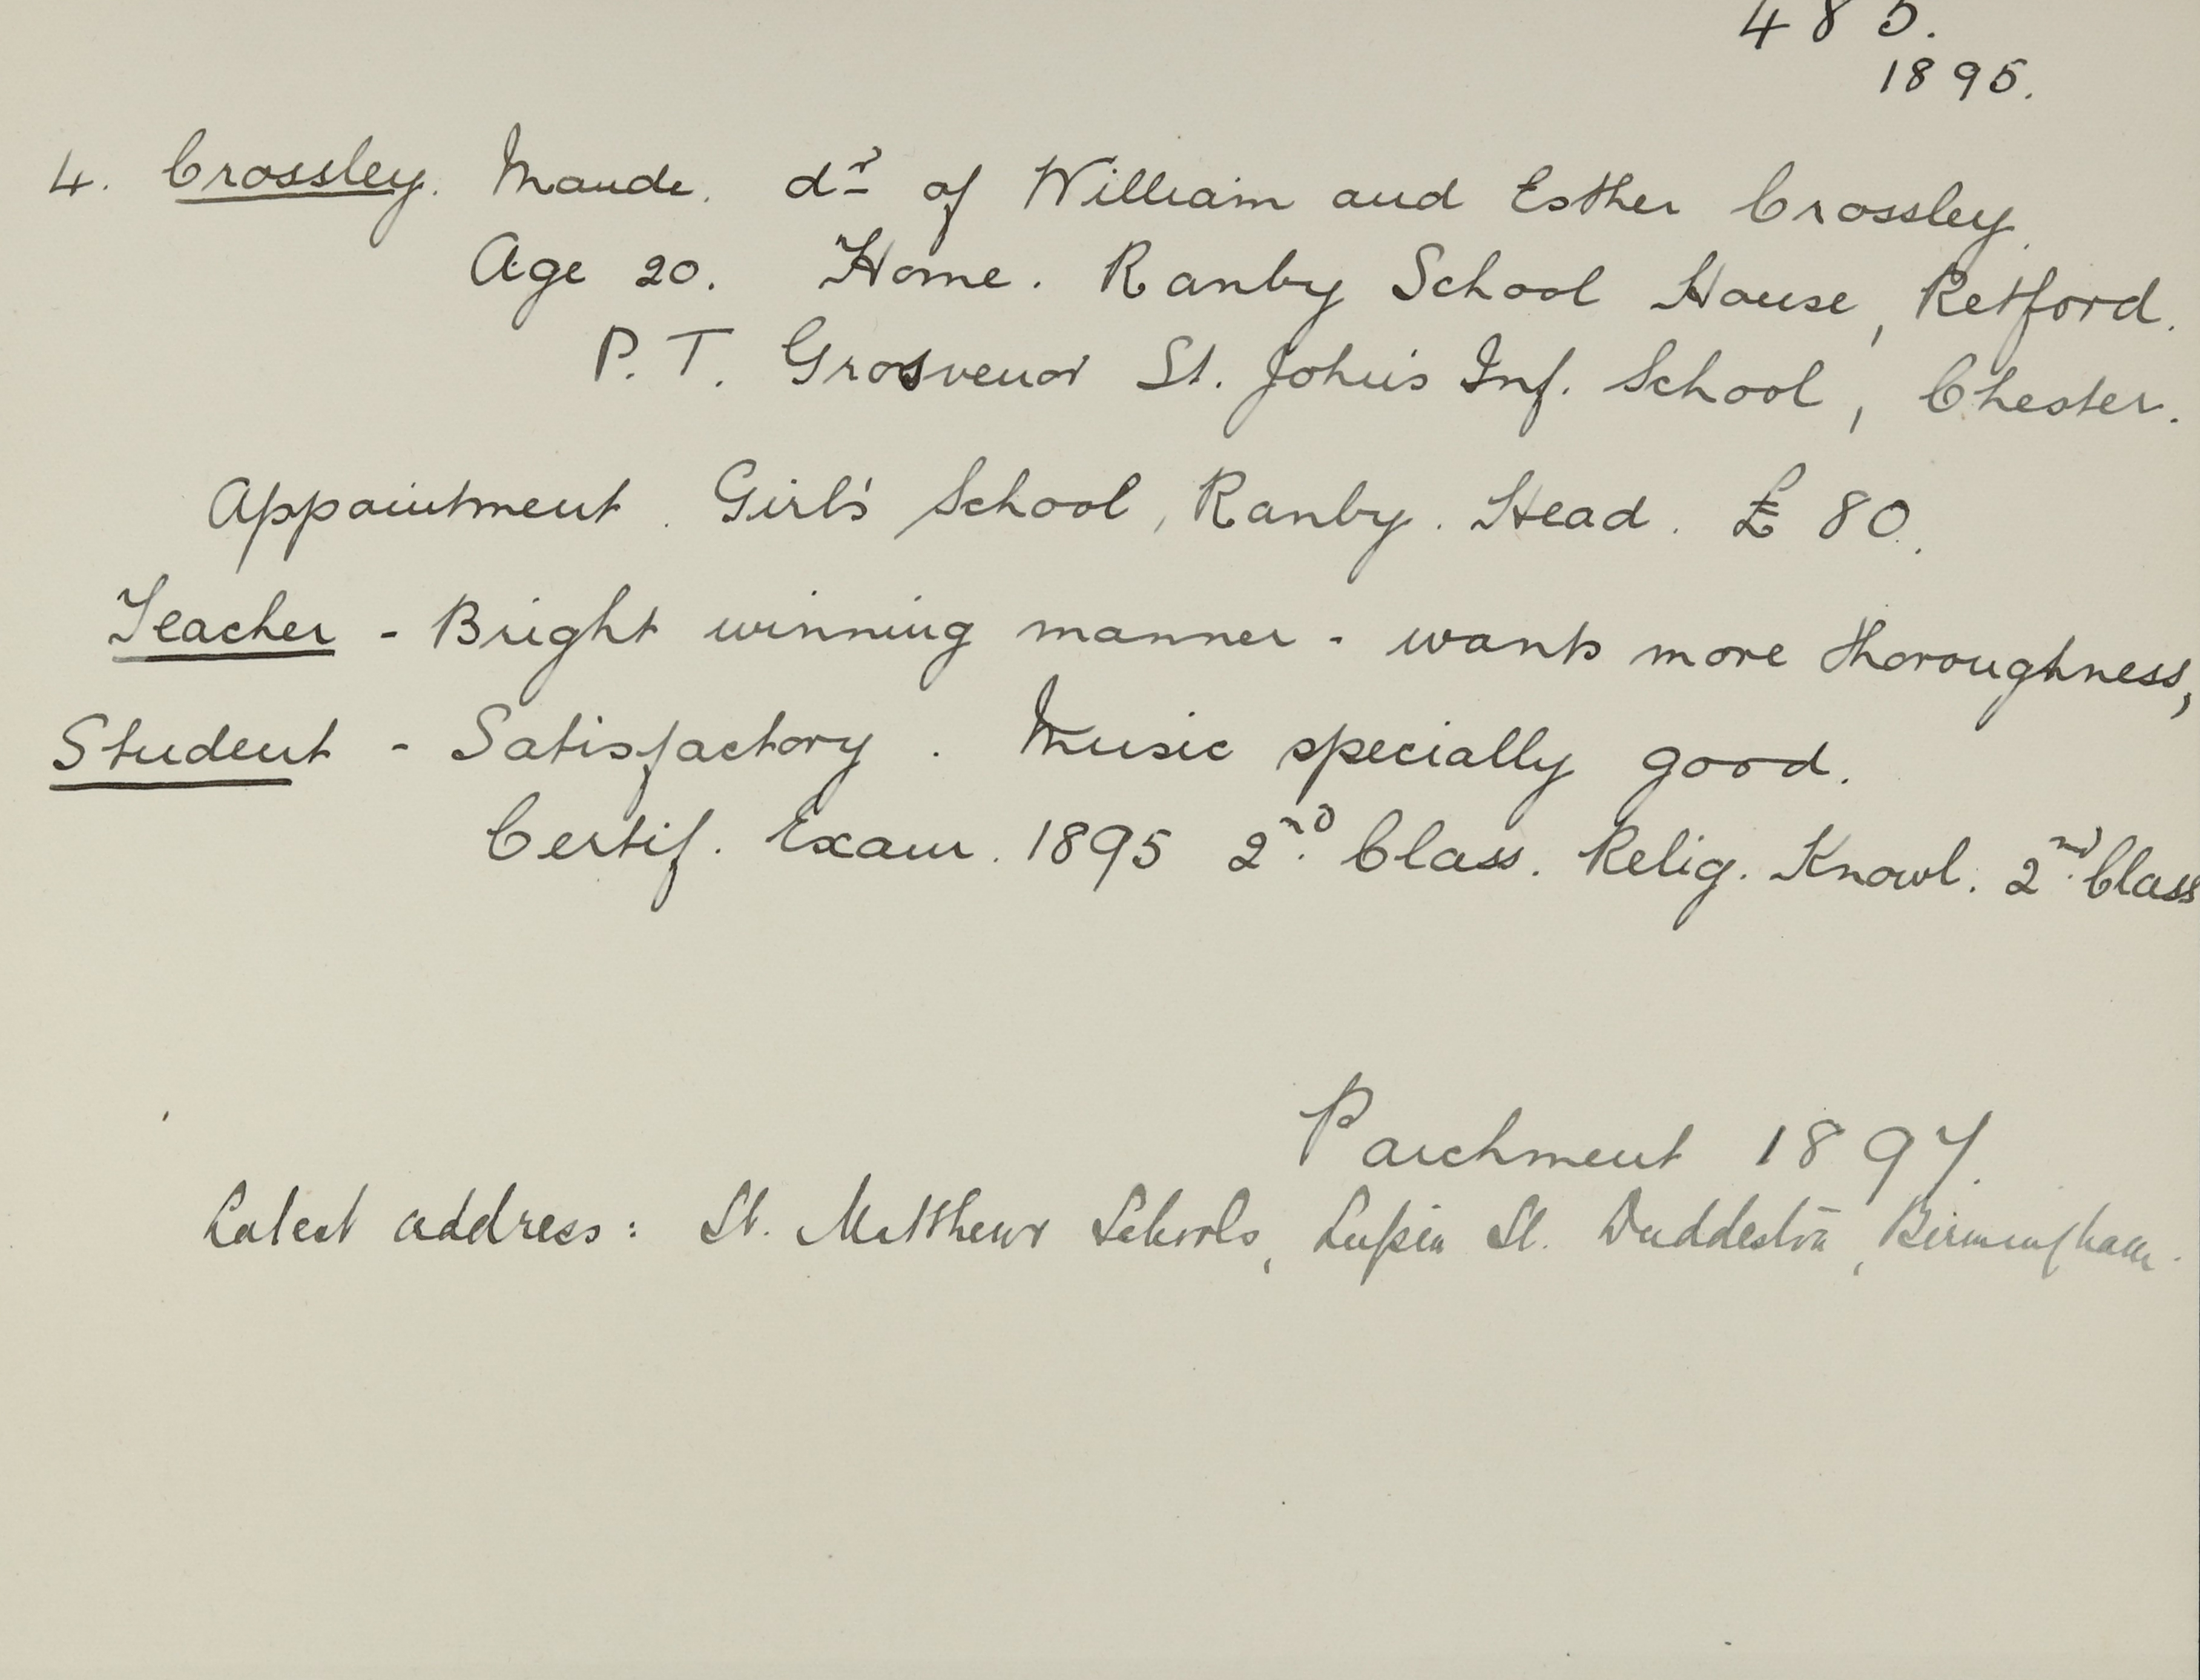 485.
1895.
4. Crossley. Maude. dr of William and Esther Crossley.
Age 20. Home. Ranby School House, Retford.
P. T. Grosvenor St. John's Inf. School, Chester.
Appointment. Girl's School, Ranby. Head. £80.
Teacher - Bright winning manner - wants more thoroughness,
Student - Satisfactory. Music specially good.
Certif. Exam. 1895 2nd. Class. Relig. Knowl. 2nd. Class
Parchment 1897.
Latest address: St. Matthews Schools, Lupin St. Duddeston, Birmingham.